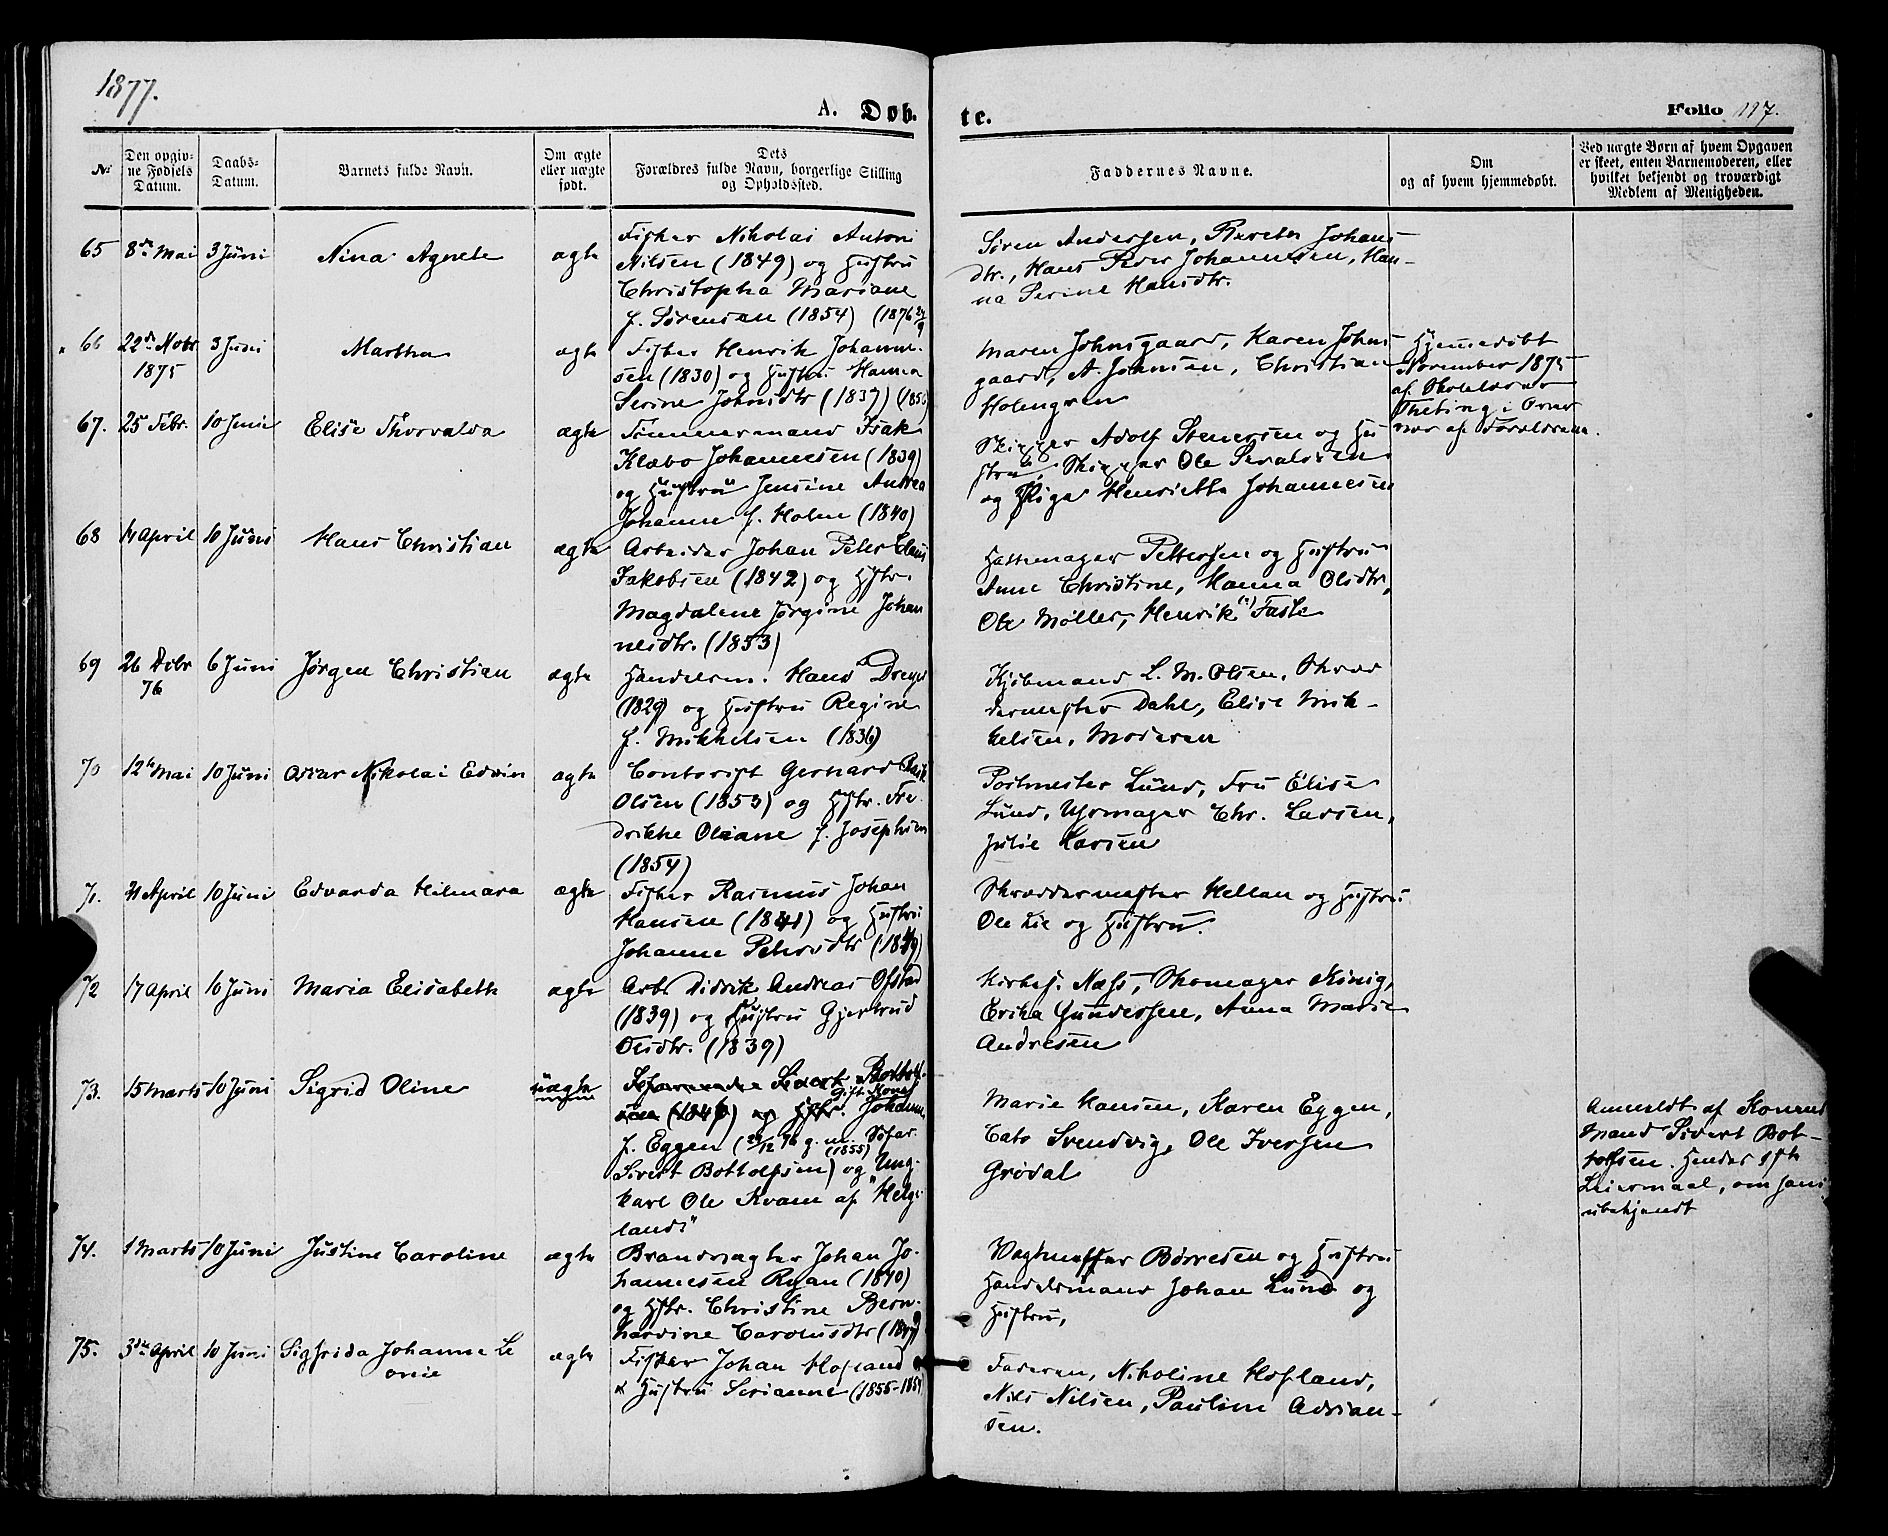 1877.
A. Døb-
te.
Folio 117.
№
Den opgiv-
ne Fødsels
Datum.
Daabs-
Datum.
Barnets fulde Navn.
Om ægte
eller uægte
født.
Dets
Forældres fulde Navn, borgerlige Stilling
og Opholdssted.
Faddernes Navne.
Om
og af hvem hjemmedøbt.
Ved uægte Børn af hvem Opgaven
er skeet, enten Barnemoderen, eller
hvilket bekjendt og troværdigt
Medlem af Menigheden.
65 8de Mai 3 Juni Nina Agnete ægte
Fisker Nikolai Antoni
Nilsen (1849) og Hustru
Christopha Mariane
f. Sørensen (1854) (1876
Søren Andersen, Johans
dtr., Hans Peder Johannesen, Han-
na Serine Hansdtr.
66 22de Nobr 3 Juni Martha ægte
1875
Fisker Henrik Johanne-
sen (1830) og Hustru Hanna
Serine Johnsdtr (1837)
Maren Johnsgaard, Karen Johns-
gaard, A. Johnsen, Christian
Holmgren
Hjemmedøbt
November 1875
af Skolelærer
i
af Forældrene.
67. 25 Febr. 10 Juni Elise Thorvalda ægte
Tømmermand Isak
Klæbo Johannesen (1839)
og Hustru Jensine Andrea
Johanne f. Holm (1840)
Skipper Adolf Stenersen og Hu-
stru, Skipper Ole
og Pige Henriette Johannesen
68 14 April 10 Juni Hans Christian ægte
Arbeider Johan Peter Claus
Jakobsen (1842) og Hstr.
Magdalene Jørgine Johan
nesdtr. (1853)
Hattemager Pettersen og Hustru
Anne Christine, Hanna Olsdtr,
Ole Møller, Henrik Faste
69 26 Debr 6 Juni Jørgen Christian ægte
76
Handelsm. Hans Dreyer
(1829) og Hustru Regine
f. Mikkelsen (1836)
Kjøbmand L. M. Olsen, Skræd
dermester Dahl, Elise Mik-
kelsen, Moderen
70 12te Mai 10 Juni Oskar Nikolai Edvin ægte
Contorist Gerhard
Olsen (1853) og Hstr. Fre-
drikke Oliane f. Josephsen
(1854)
Postmester Lund, Fru Elise
Lund, Uhrmager Chr. Larsen,
Julie Larsen
71. 21 April 10 Juni Edvarda Hilmara ægte
Fisker Rasmus Johan
Hansen (1841) og Hustru
Johanne Petersdtr (1849)
Skræddermester Hellan og Hustru
Ole Lie og Hustru.
72 17 April 10 Juni Maria Elisabeth ægte
Arb. Didrik Andreas Ofstad
(1839) og Hustru Gjertrud
Olsdtr. (1839)
Kirkes. Næss, Skomager König,
Erika Gundersen, Anna Marie
Andresen
73. 15 Marts 10 Juni Sigrid Oline uægte
Sivert Bottolf-
Gift Kone
sen (1846) og Hstr. Johanne
f. Eggen (29/12 76 g. m. Søfar.
(1855)
Sivert Bottolfsen) og Ung-
karl Ole Kvam af "Helge-
lands"
Marie Hansen, Karen Eggen,
Cato Svendvig, Ole Iversen
Grødal
Anmeldt af Konens
Mand Sivert Bot-
tolfsen. Hendes 1ste
Leiermaal, om hans
ubekjendt
74. 1 Marts 10 Juni Justine Caroline ægte
Brandvagter Johan Jo-
hannesen Ryan (1840)
og Hstr. Christine Bern-
hardine Carolusdtr
Vagtmester Børresen og Hustru
Handelsmand Johan Lund og
Hustru,
75. 3die April 10 Juni Sigfrida Johanne Le ægte
onie
Fisker Johan Hofland
& Hustru Serianne (1855-1854)
Faderen, Nikoline Hofland,
Nils Nilsen, Pauline Adrian-
sen.